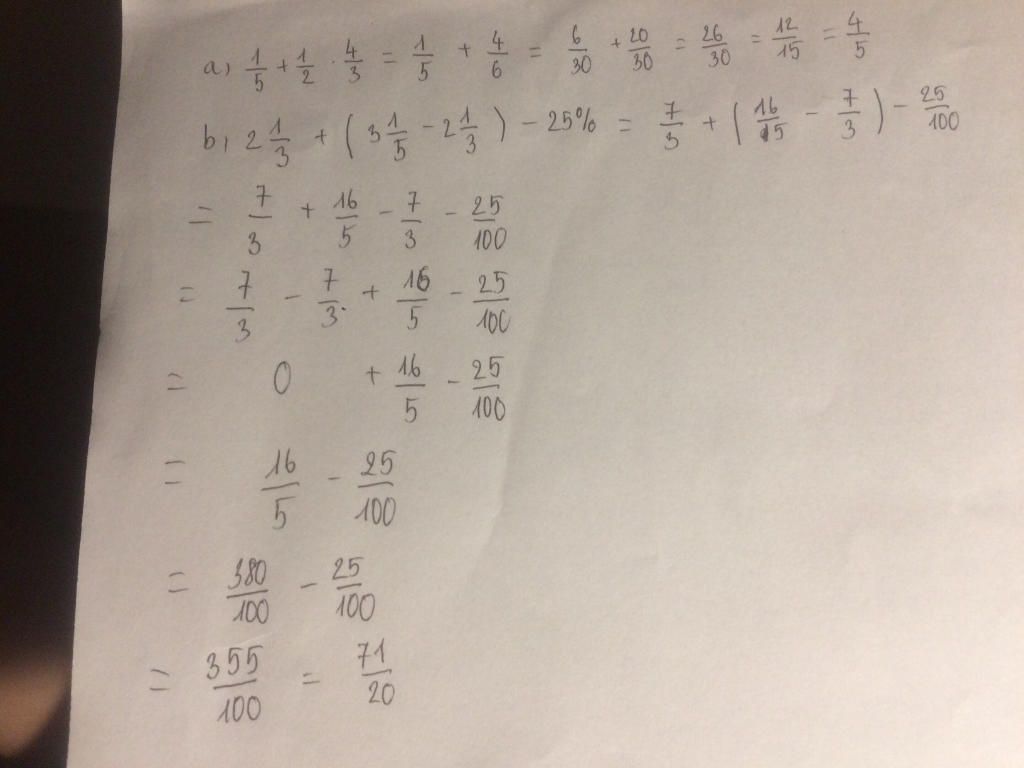 a) 1/5 + 1/2 · 4/3 = 1/5 + 4/6 = 6/30 + 20/30 = 26/30 = 12/15 = 4/5
b) 2 1/3 + ( 3 1/5 - 2 1/3 ) - 25% = 7/3 + ( 16/15 - 7/3 ) - 25/100
= 7/3 + 16/5 - 7/3 - 25/100
= 7/3 - 7/3 + 16/5 - 25/100
= 0 + 16/5 - 25/100
= 16/5 - 25/100
= 380/100 - 25/100
= 355/100 = 71/20